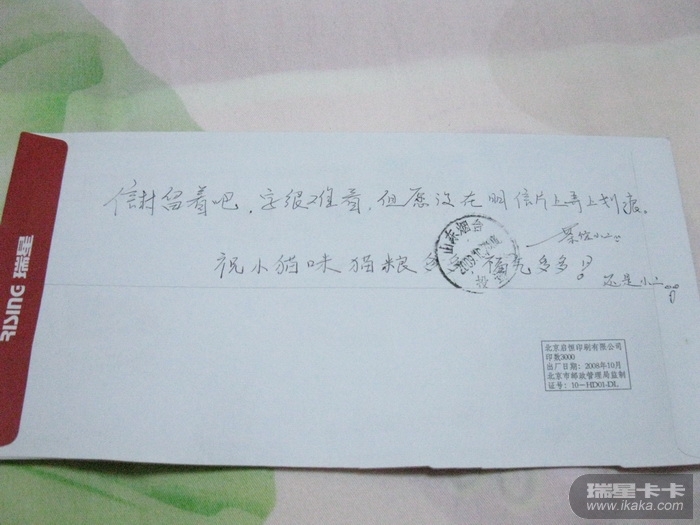 信封留着吧，字很难看，但愿没在明信片上弄上划痕。
祝小猫咪猫粮多多 福气多多！
还是小二
山东烟台
RISING 瑞星
北京启恒印刷有限公司
印数3000
出厂日期：2008年10月
北京市邮政管理局监制
证号：10-HD01-DL
瑞星卡卡
www.ikaka.com